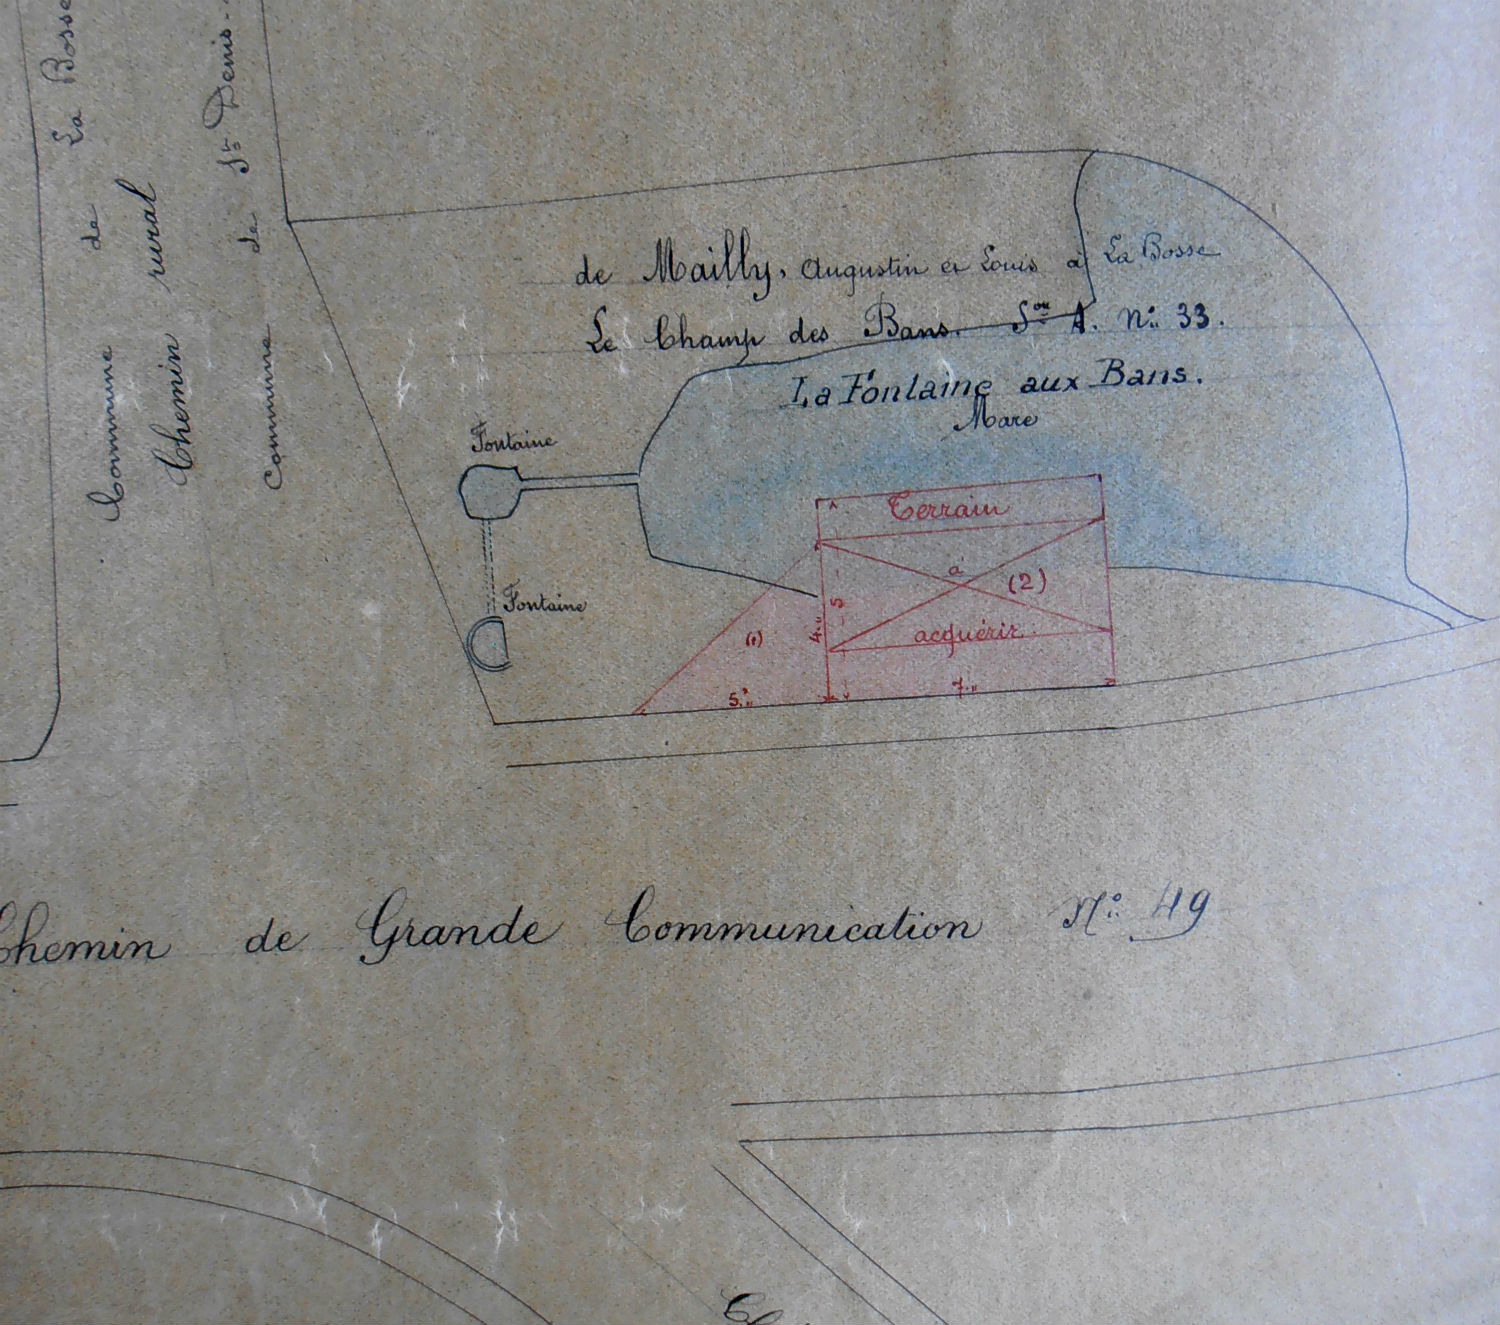 Commune de La Bosse
Chemin rural
Commune de St Denis
de Mailly, Augustin et Louis à La Bosse
Le Champ des Bans. Son A. No 33.
La Fontaine aux Bans.
Mare
Fontaine
Fontaine
Terrain
à
(2)
acquérir
(1)
4."
5
5."
7."
Chemin de Grande Communication No 49